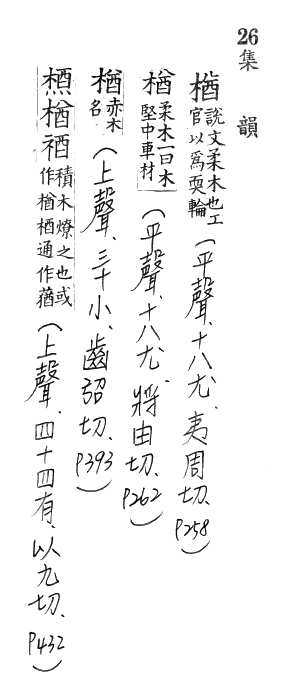 26集韻
楢說文柔木也工官以爲耎輪（平聲、十八尤、夷周切、P258）
楢柔木一曰木堅中車材（平聲、十八尤、將由切、P262）
楢赤木名（上聲、三十小、齒紹切、P393）
槱楢禉積木燎之也或作楢栖通作蕕（上聲、四十四有、以九切、P432）